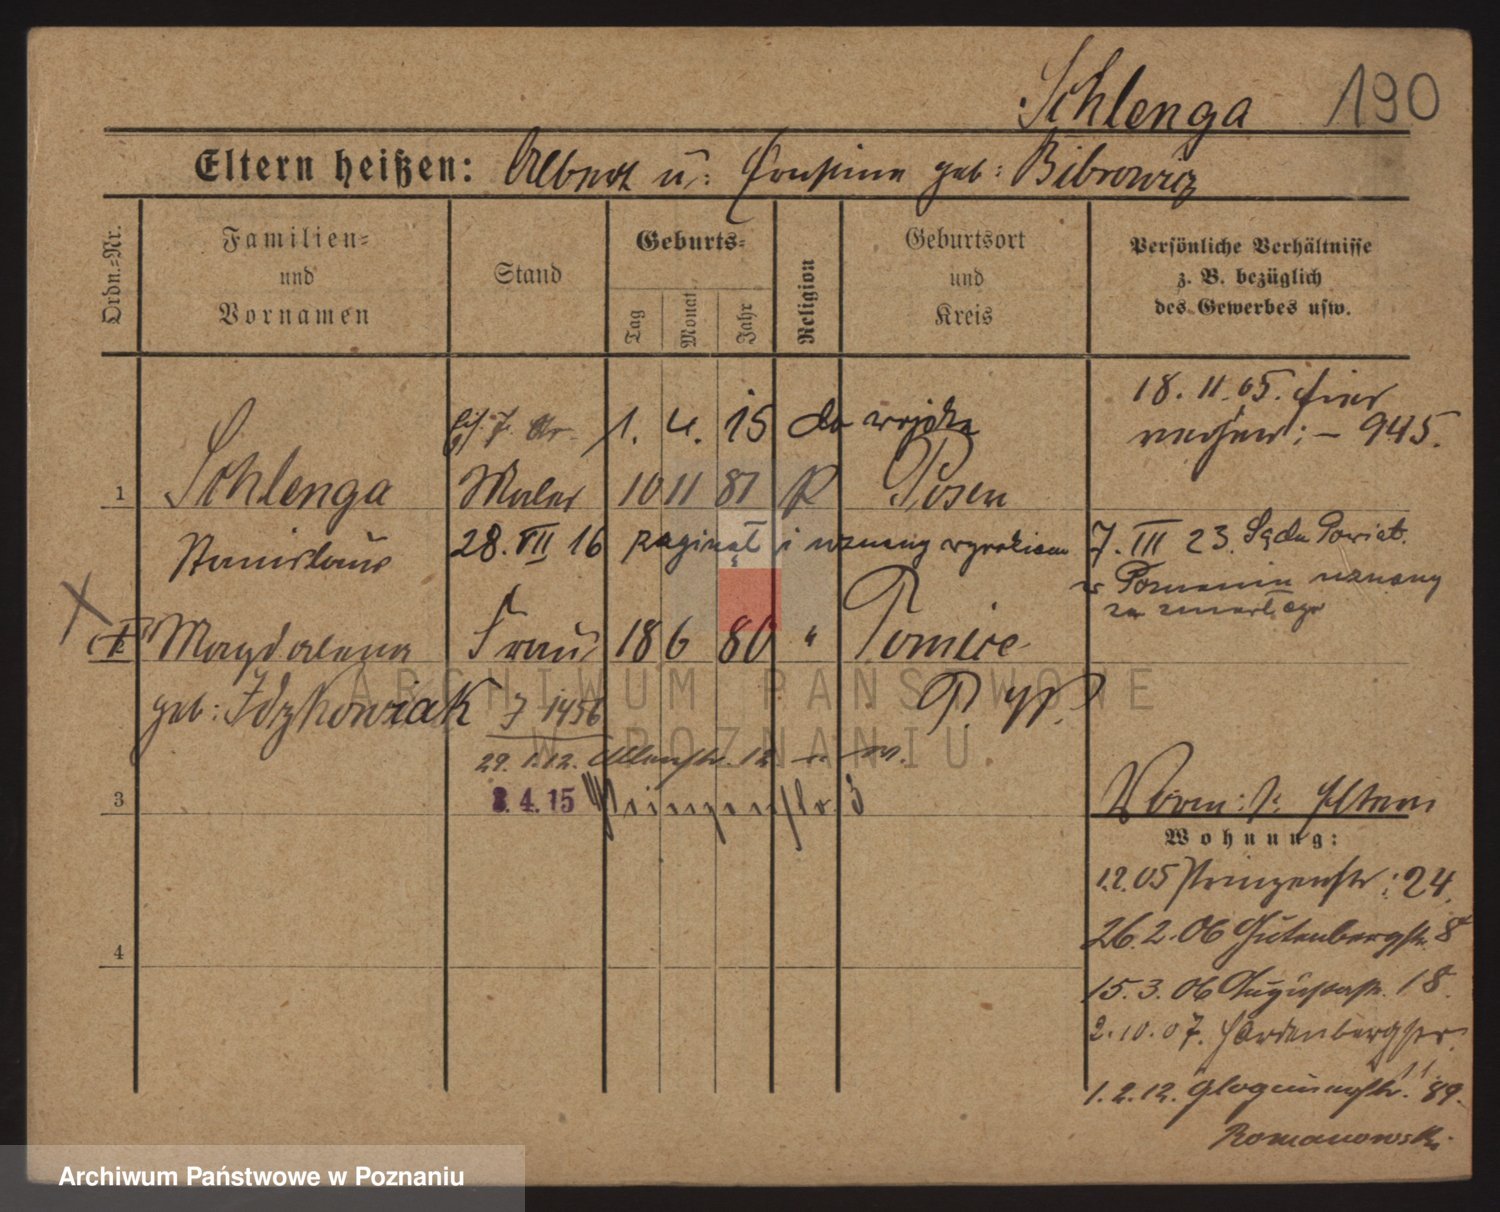 Schlenga 190
Eltern heißen: Albert u: geb: Bibrowicz
Ordn.=Nr.
Familien=
und
Vornamen
Stand
Geburts=
Tag
Monat
Jahr
Religion
Geburtsort
und
Kreis
Persönliche Verhältnisse
z. B. bezüglich
des Gewerbes usw.
18. 11. 05. hier
: – 945.
1. 4. 15 do wojska
1 Schlenga Maler 10 11 81 K Posen
Stanislaus 28. VII 16 zaginął i uznany wyrokiem 7. III 23. Sądu Powiat.
w Poznaniu uznany
za zmarłego
Magdalena Frau 18 6 80 " Pomice
geb: Idzkowiak J 1456 P. W.
29. 1. 12. 12
3 3. 4. 15 Prinzenstr 3
Worn: s: Eltern
Wohnung:
1.2.05 Prinzenstr: 24.
26.2.06 Gutenbergstr. 8
4
15.3.06 Augustastr. 18.
2.10.07. Hardenbergstr.
11
1.2.12. Glogauerstr. 89.
Romanowski.
ARCHIWUM PAŃSTWOWE
W POZNANIU
Archiwum Państwowe w Poznaniu